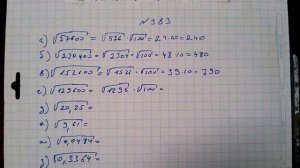 №383
а) √57600 = √576 · √100 = 24·10 = 240
б) √230400 = √2304 · √100 = 48·10 = 480
в) √152100 = √1521 · √100 = 39·10 = 390
г) √129600 = √1296 · √100 =
д) √20,25 =
е) √9,61 =
ж) √0,0484 =
з) √0,3364 =